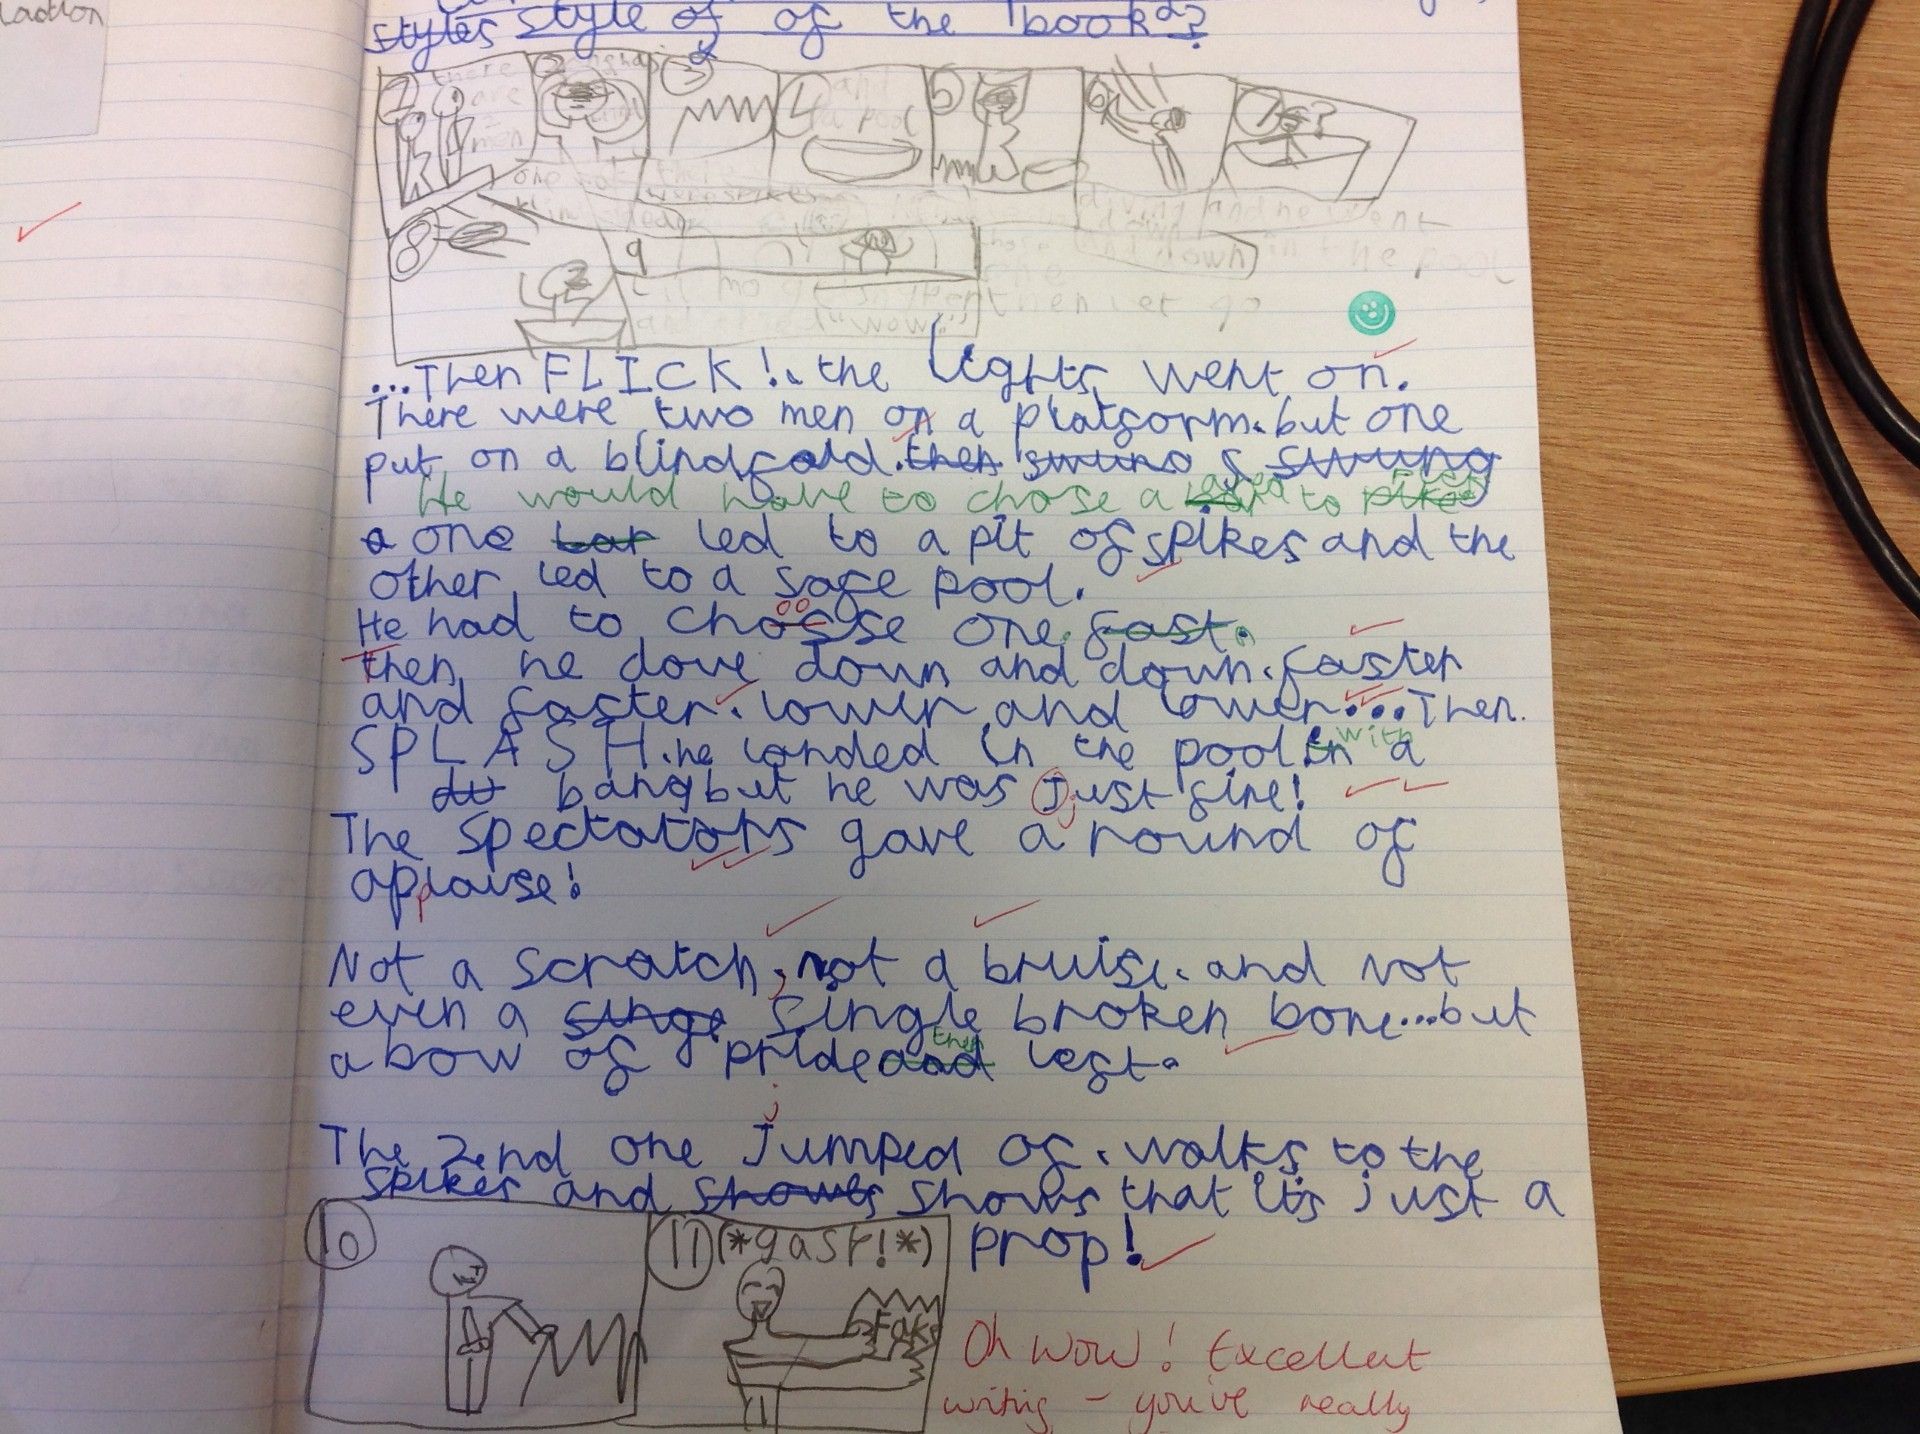 laction
styles style of of the book?
1 there are 2 men
2
3
4 and a pool
5
6
7 ?
one
were spikes
diving and he went
down
and down) in the pool
8
9
then let go
and "wow"
...Then FLICK! the lights went on.
There were two men on a platform. but one
put on a blindfold. then swung s swung
He would have to chose a bar area to pikes
a one bar led to a pit of spikes and the
other led to a safe pool.
He had to choose one fast.
then he dove down and down. faster
and faster. lower and lower... Then
SPLASH. he landed in the pool. in with a
du bang but he was Just fine!
The spectators gave a round of
applause!
Not a scratch, not a bruise. and not
even a singe single broken bone...but
a bow of pride and then left.
The 2nd one Jumped of. walks to the
spikes and showes shows that it's just a
prop!
10
11 (*gasp!*)
Fake
Oh wow! Excellent
writing - you've really